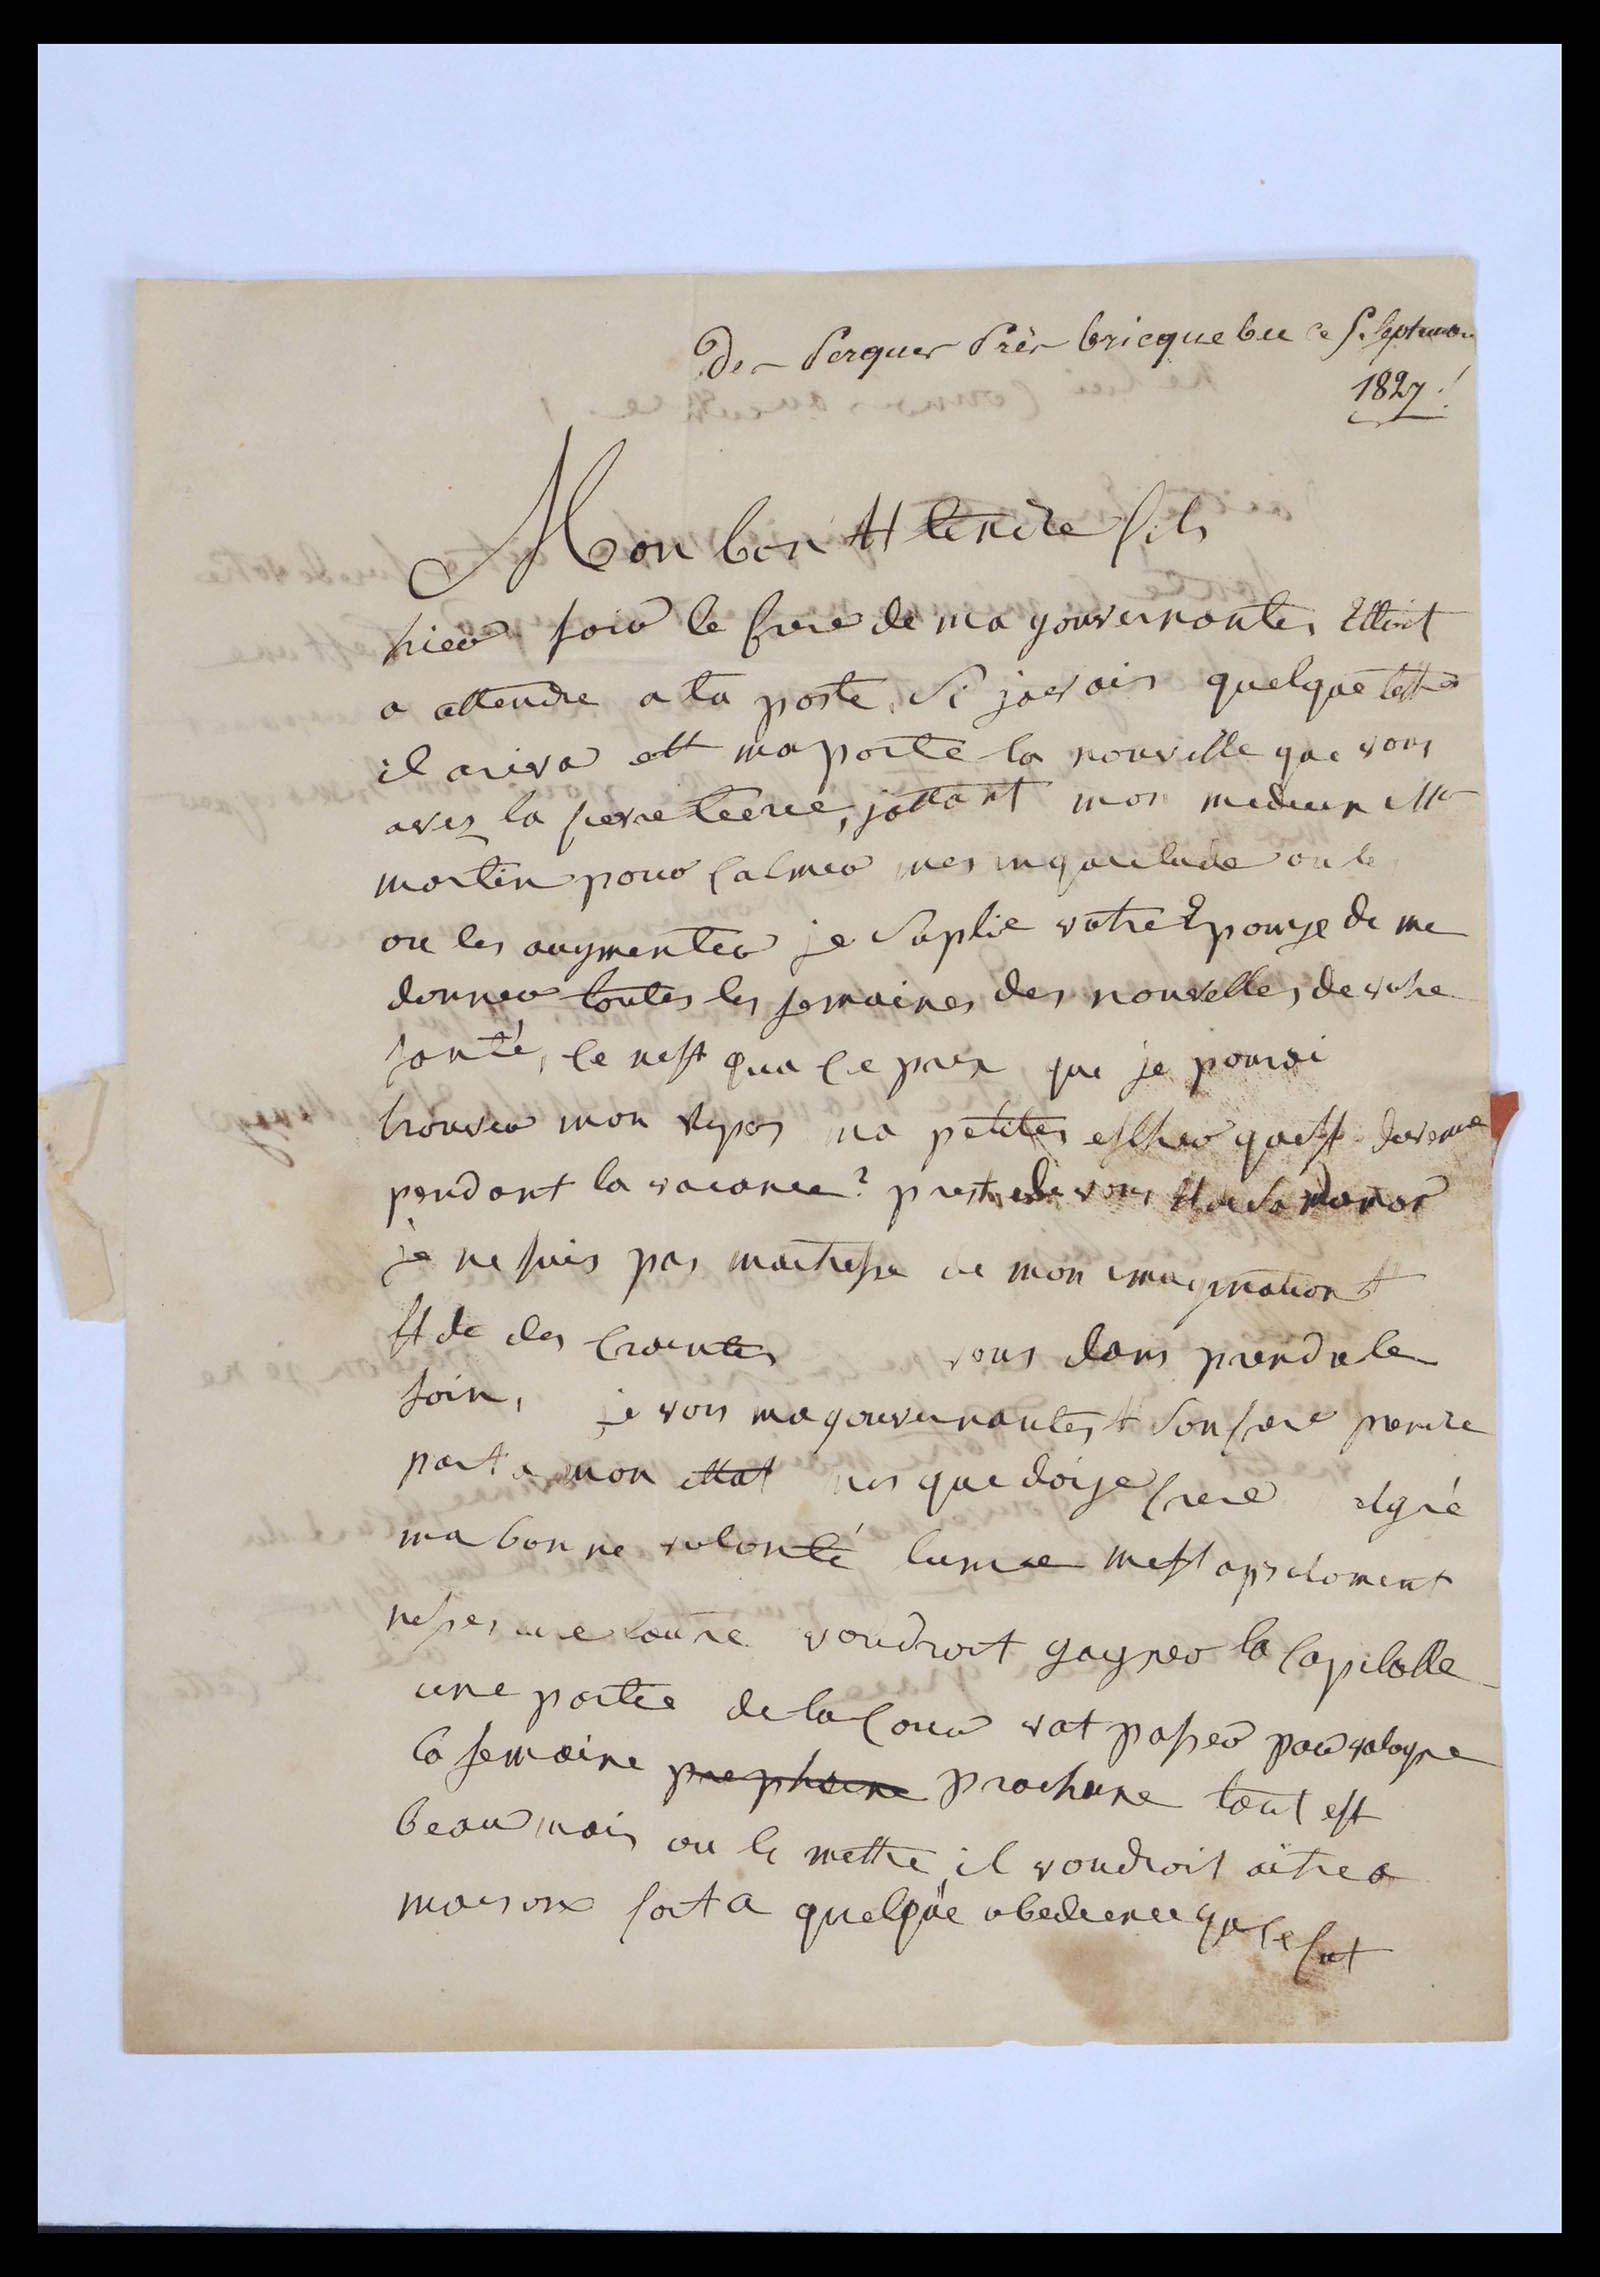 De Perques Près bricquebec ce 5 Septembre
1827
Mon bon Et tendre fils
hier soir le frere de ma gouvernantes Ettoit
a attendre a la poste, si javais quelque lettre
il ariva ett maporte la nouvelle que vous
avez la fievre tierce, jattant mon medecin Mr
mortin pour calmer mes inquietude ou le
ou les augmenter je Suplie votre Epouze de me
donner toutes les semaines des nouvelles de votre
santé, ce nest qua ce prix que je pourai
trouver mon repos ma petites esther quest devenue
pendant la vacance? prest de vous Et de sa maman
je ne suis pas maitresse de mon imagination
Et de des craintes vous dans prendre le
soin, je vois ma gouvernantes Et Son frere prendre
part a mon ettat que doije crere
ma bonne volonté mest
voudroit gagner la Capitalle
une partie de la Cour vat passer par valogne
la semaine prochene tout est
beau mais ou le mettre, il voudroit aitre a
maison soit a quelque obedience que ce fut